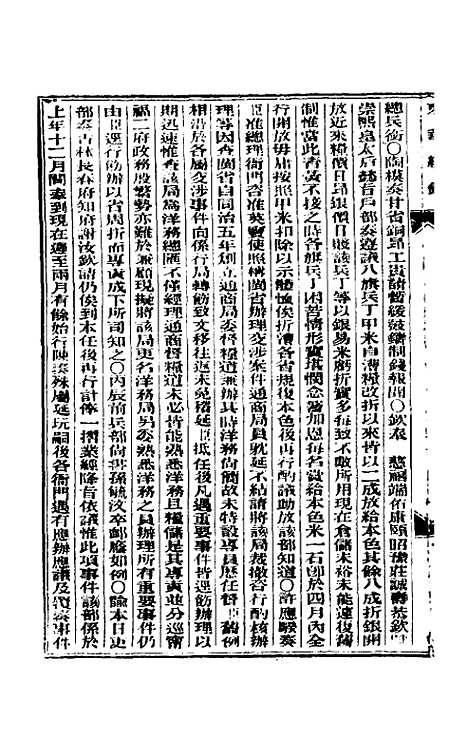 總兵銜〇陶模奏甘省銅昂工貴請暫緩鼓鑄制錢報聞〇欽奉　慈禧端佑康頤昭豫莊誠壽恭欽
崇熙皇太后懿旨戶部奏遵議八旗兵丁甲米自漕糧改折以來皆以二成放給本色其餘八成折銀開
放近來糧價日昂銀價日賤該兵丁等以銀易米虧折實多每致不敷所用現在倉儲未裕未能遽復舊
制惟當此青黃不接之時各旗兵丁困苦情形實堪憫念著加恩每名賞給本色米一石卽於四月內全
行開放毋庸按照甲米扣除以示體恤俟折漕各省規復本色後再行酌議助放該部知道〇許應騤奏
臣准總理衙門咨准英寶使照稱閩省辦理交涉案件通商局員躭延不結請將該局裁撤咨行酌核辦
理等因查閩省自同治五年創立通商局委督糧道兼辦其時洋務尚簡故未特設專員歷任督臣舊例
相沿於各屬交涉事件向係行局轉飭致文移往返未免稽延臣抵任後凡遇重要事件皆逕飭辦理以
期迅速惟查該局爲洋務總匯不僅經理通商督糧道未必皆能熟悉洋務且糧儲是其專責並分巡甯
福二府政務殷繁勢亦難於兼顧現擬將該局更名洋務局另委熟悉洋務之員辦理所有重要事件仍
由臣逕行飭辦以省周折而專責成下所司知之〇丙辰前兵部尚書孫毓汶卒卹廕如例〇諭本日吏
部奏吉林長春府知府謝汝欽請仍俟到本任後再行計俸一摺業經降旨依議惟此項事件該部係於
上年十二月閒奏到現在遲至兩月有餘始行陳奏殊屬延玩嗣後各衙門遇有應辦應議及覆奏事件